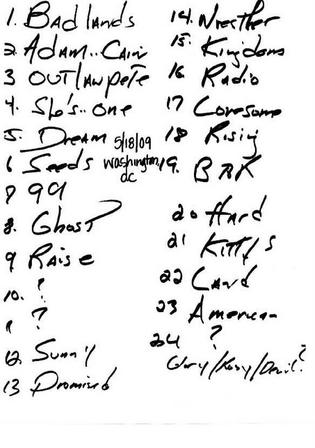 1. Badlands
2. Adam..Cain
3 OUTlawpete
4. She's..one
5. Dream
5/18/09
6 Seeds
Washington,
DC
? 99
8. Ghost
9 Raise
10. ?
?
12. Sunny
13 Promised
14. Weather
15. Kingdoms
16 Radio
17 Lonesome
18 Rising
19. BRK
20 Hard
21 Kitty's
22 Land
23 American
24 ?
Glory/Rosy/Devil?